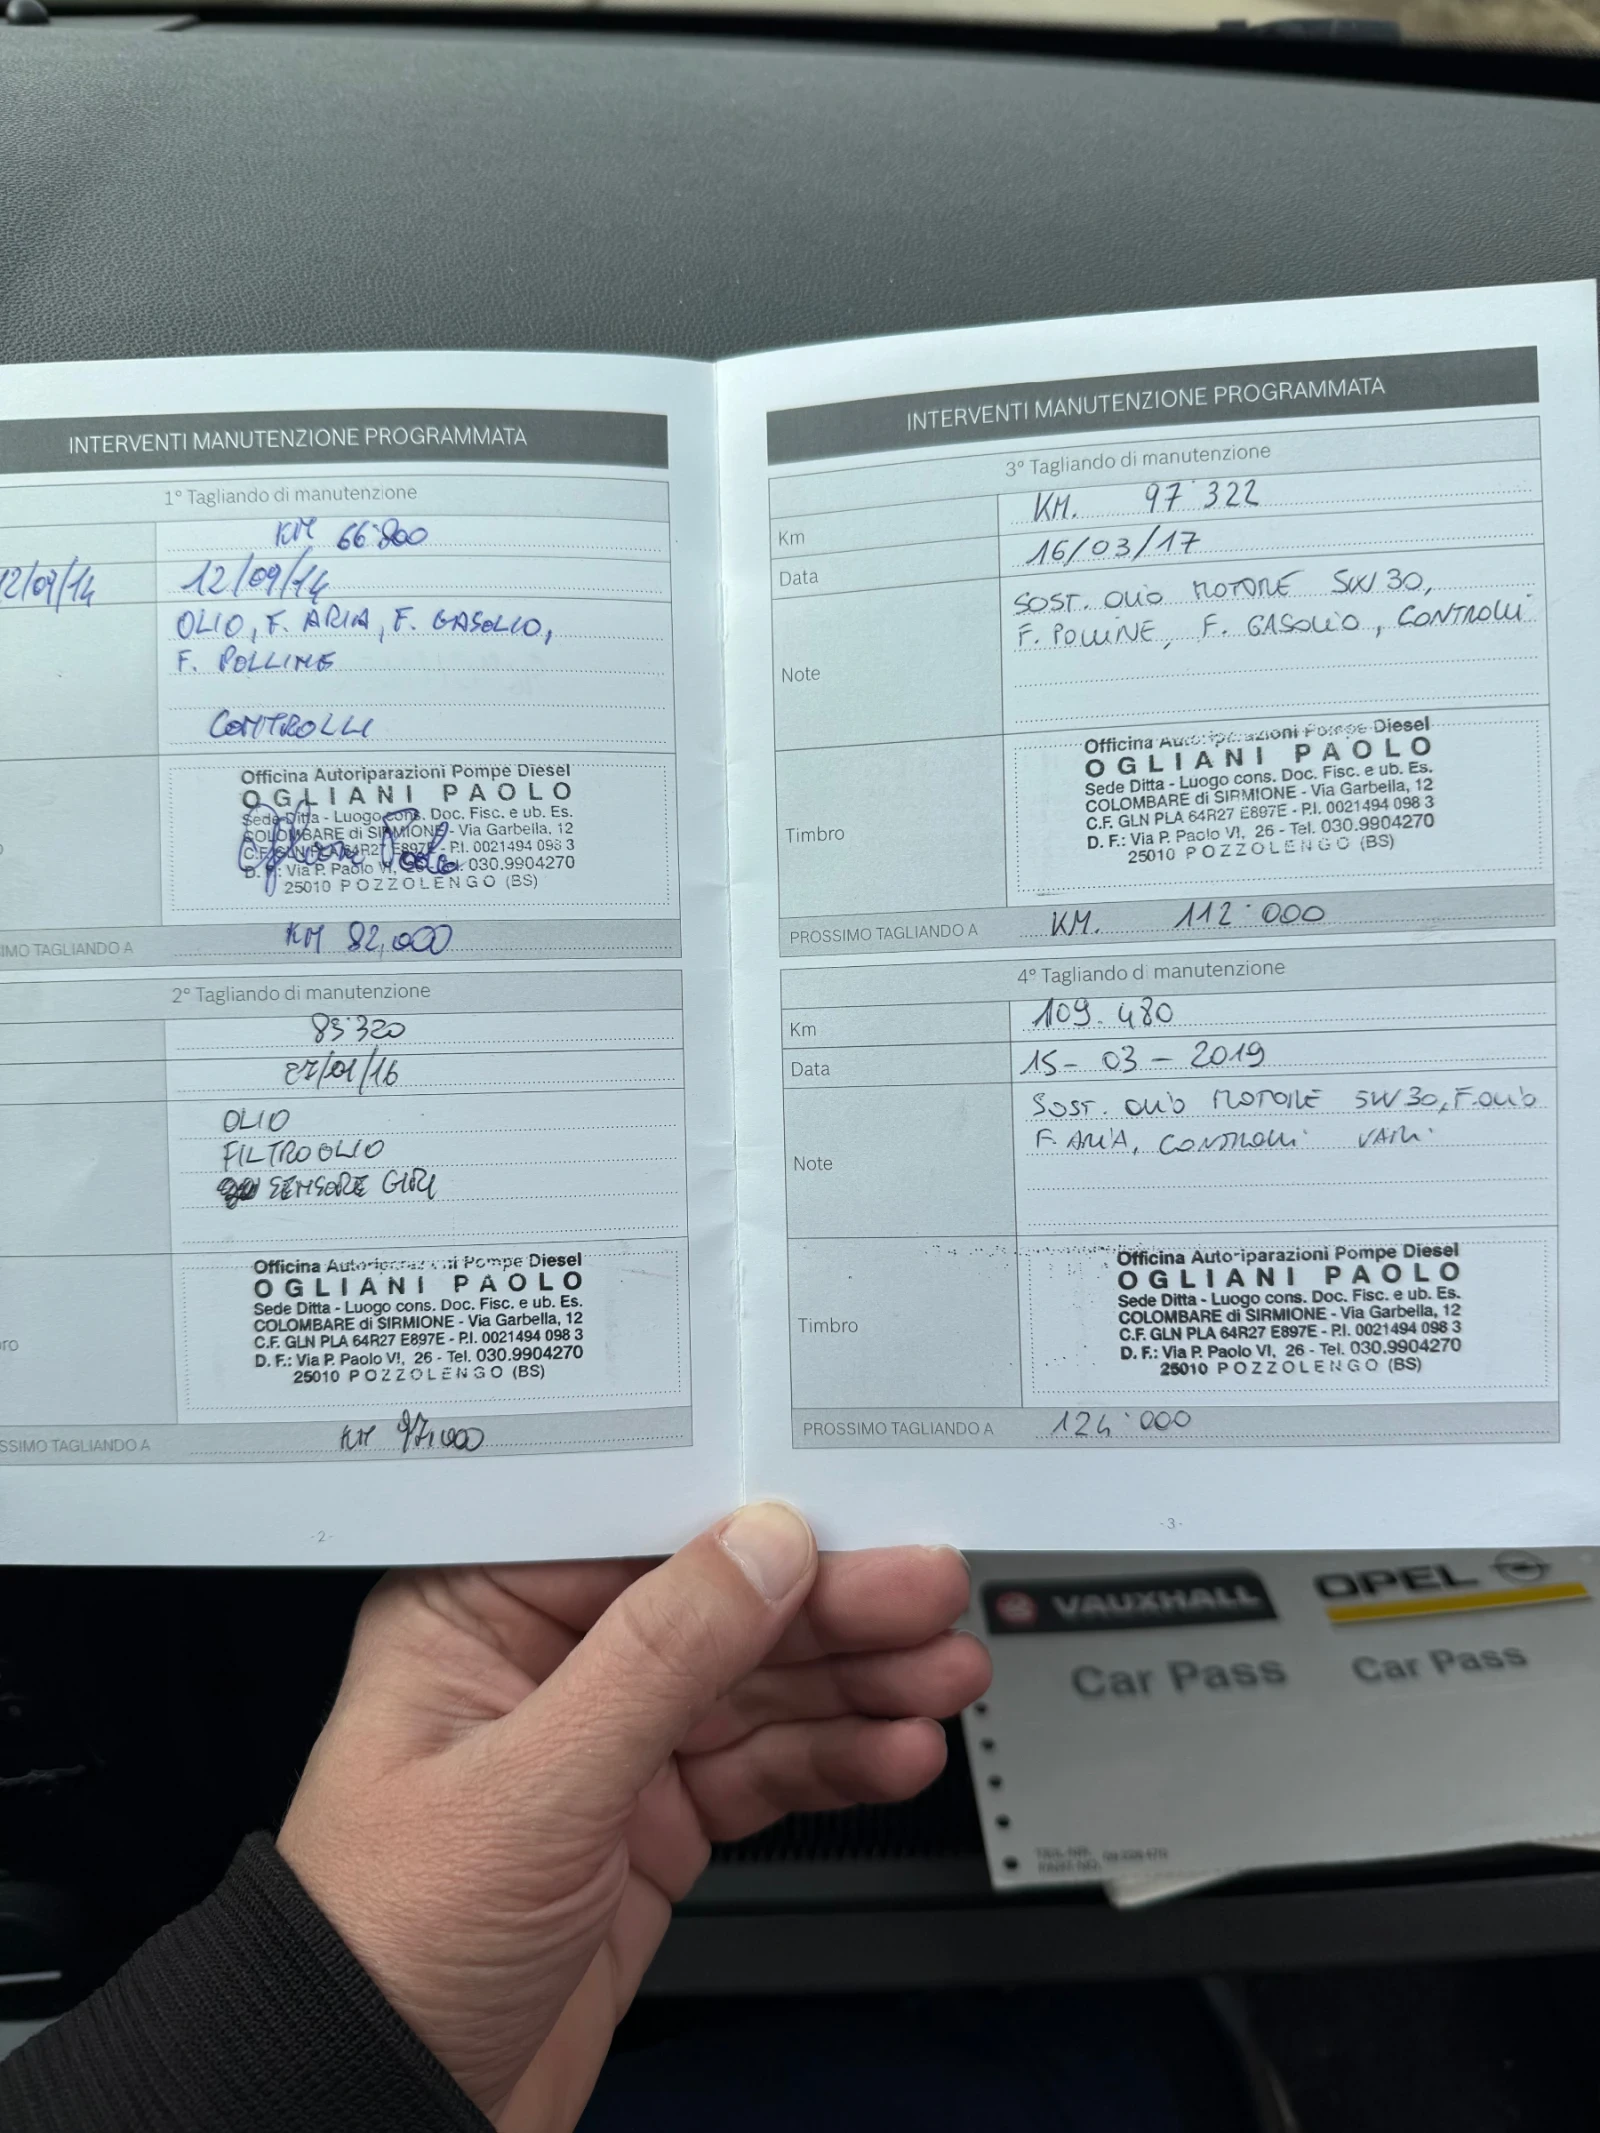 INTERVENTI MANUTENZIONE PROGRAMMATA
1° Tagliando di manutenzione
KM 66.800
12/09/14
12/09/14
OLIO, F. ARIA, F. GASOLIO,
F. POLLINE
CONTROLLI
Officina Autoriparazioni Pompe Diesel
OGLIANI PAOLO
Sede Ditta - Luogo cons. Doc. Fisc. e ub. Es.
COLOMBARE di SIRMIONE - Via Garbella, 12
C.F. GLN PLA 64R27 E897E - P.I. 0021494 098 3
D. F.: Via P. Paolo VI, 030.9904270
25010 POZZOLENGO (BS)
IMO TAGLIANDO A KM 82.000
2° Tagliando di manutenzione
83'320
27/01/16
OLIO
FILTRO OLIO
SENSORE GIRI
Officina Autoriparazioni Pompe Diesel
OGLIANI PAOLO
Sede Ditta - Luogo cons. Doc. Fisc. e ub. Es.
COLOMBARE di SIRMIONE - Via Garbella, 12
C.F. GLN PLA 64R27 E897E - P.I. 0021494 098 3
D. F.: Via P. Paolo VI, 26 - Tel. 030.9904270
25010 POZZOLENGO (BS)
SSIMO TAGLIANDO A KM 97.000
-2-
INTERVENTI MANUTENZIONE PROGRAMMATA
3° Tagliando di manutenzione
Km KM. 97'322
Data 16/03/17
Note SOST. OLIO MOTORE 5W30,
F. POLLINE, F. GASOLIO, CONTROLLI
Timbro
Officina Autoriparazioni Pompe Diesel
OGLIANI PAOLO
Sede Ditta - Luogo cons. Doc. Fisc. e ub. Es.
COLOMBARE di SIRMIONE - Via Garbella, 12
C.F. GLN PLA 64R27 E897E - P.I. 0021494 098 3
D. F.: Via P. Paolo VI, 26 - Tel. 030.9904270
25010 POZZOLENGO (BS)
PROSSIMO TAGLIANDO A KM. 112'000
4° Tagliando di manutenzione
Km 109.480
Data 15-03-2019
Note SOST. OLIO MOTORE 5W30, F.OLIO
F. ARIA, CONTROLLI VARI.
Timbro
Officina Autoriparazioni Pompe Diesel
OGLIANI PAOLO
Sede Ditta - Luogo cons. Doc. Fisc. e ub. Es.
COLOMBARE di SIRMIONE - Via Garbella, 12
C.F. GLN PLA 64R27 E897E - P.I. 0021494 098 3
D. F.: Via P. Paolo VI, 26 - Tel. 030.9904270
25010 POZZOLENGO (BS)
PROSSIMO TAGLIANDO A 124'000
-3-
VAUXHALL OPEL
Car Pass Car Pass